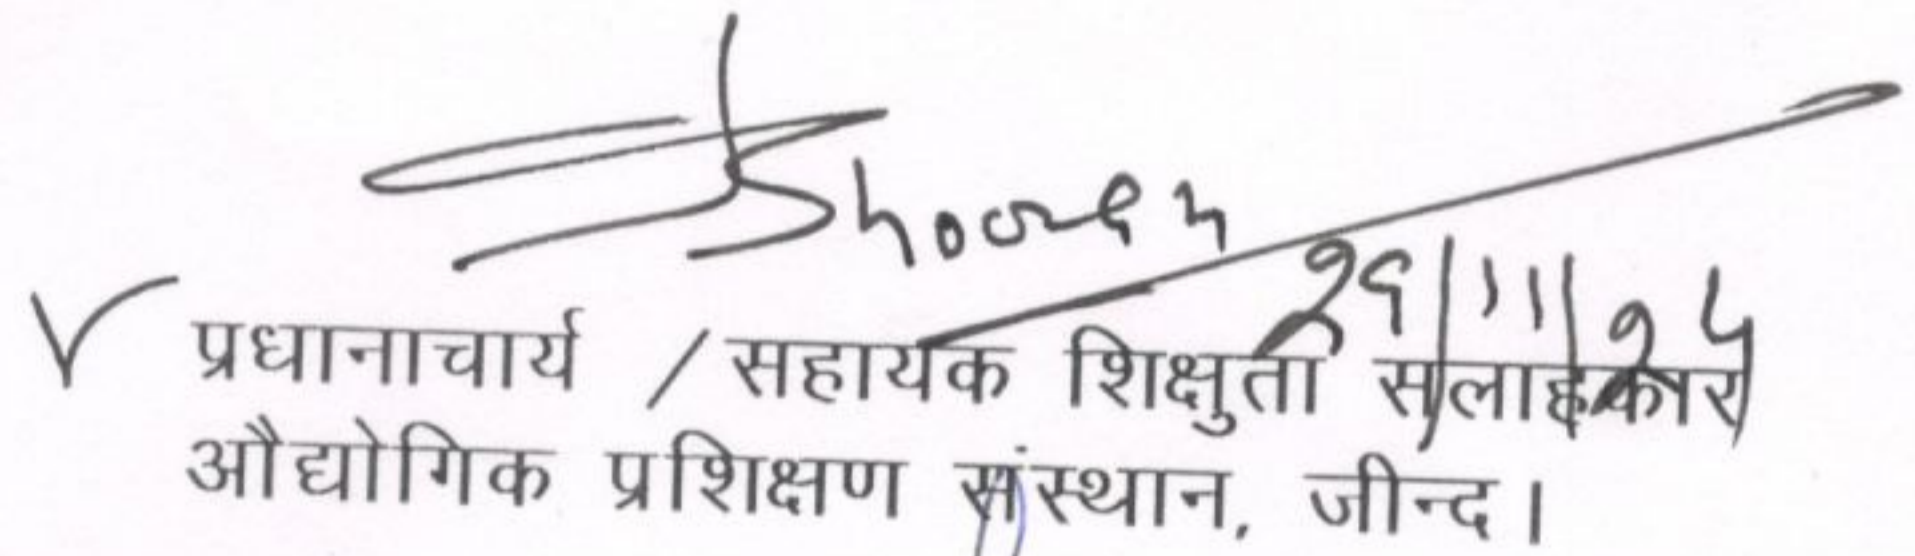 29/11/24
प्रधानाचार्य / सहायक शिक्षुता सलाहकार
औद्योगिक प्रशिक्षण संस्थान, जीन्द।